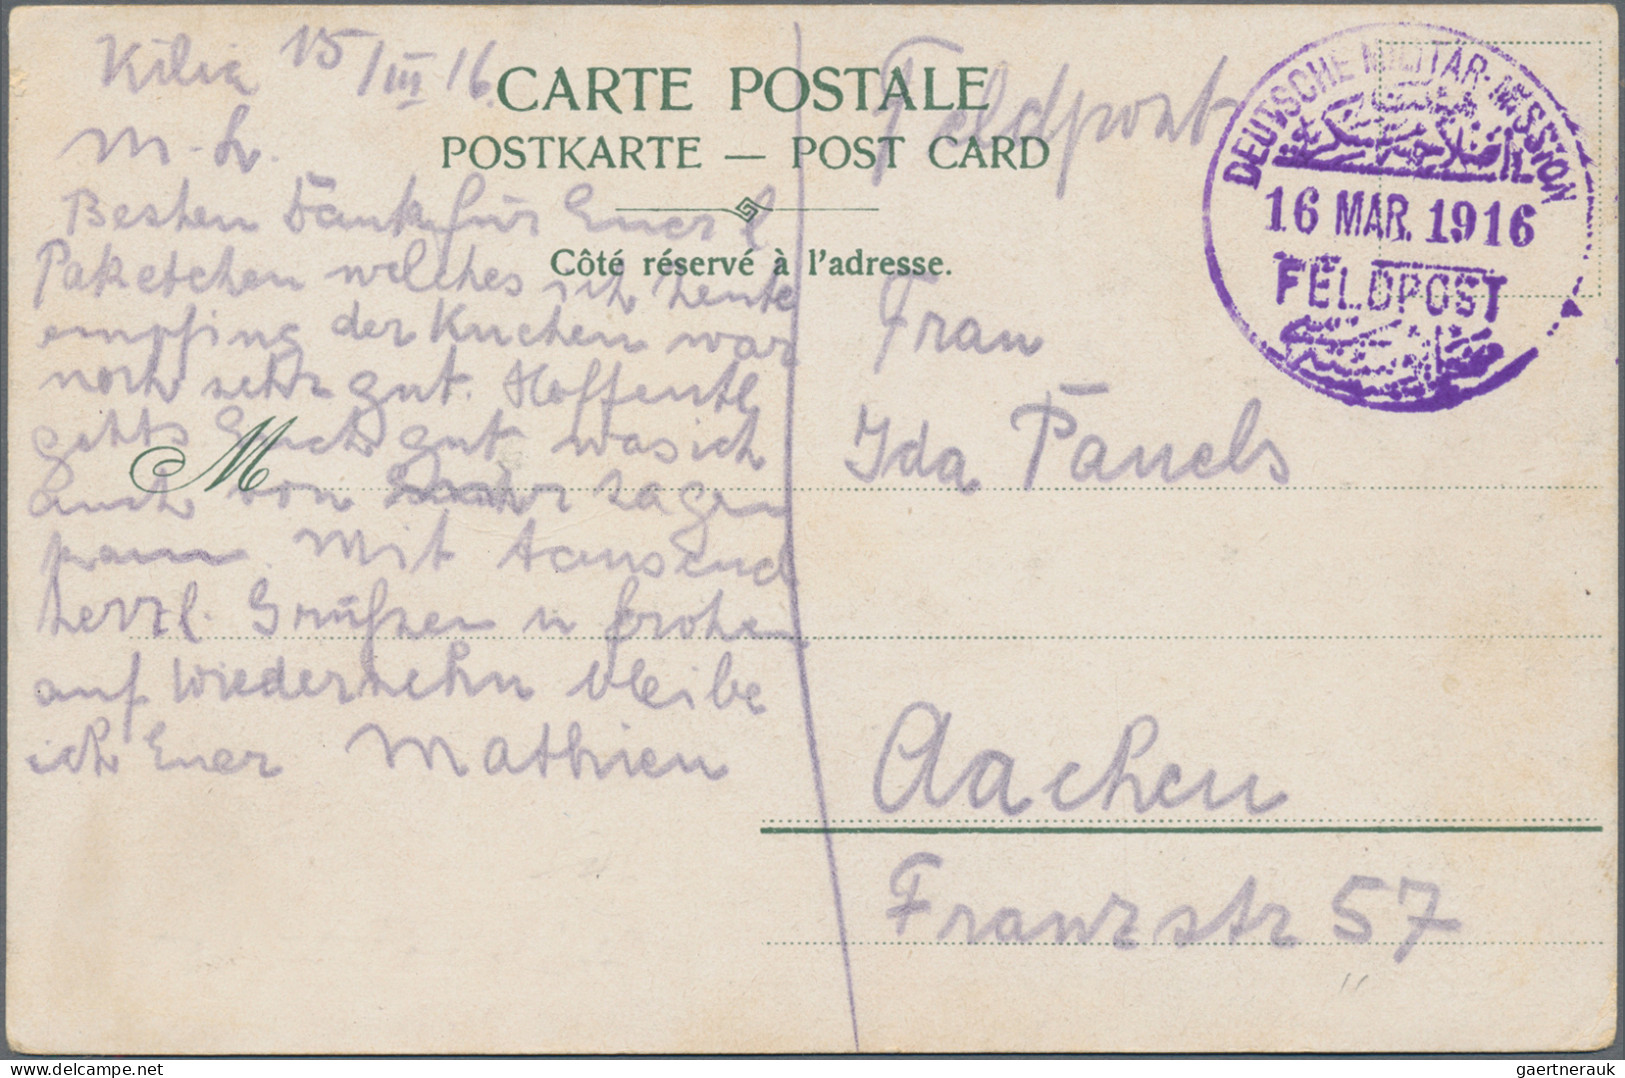 Kilia 15/III 16.
M. L.
Besten Dank für Euer l
Paketchen welches ich heute
empfing der Kuchen war
noch sehr gut. Hoffentl
gehts Euch gut was ich
auch von sagen
kann. Mit tausend
herzl. Grüßen u frohen
auf Wiedersehn bleibe
ich Euer Mathieu
CARTE POSTALE
POSTKARTE — POST CARD
Côté réservé à l'adresse.
M
Feldpost
DEUTSCHE MILITÄR-MISSION
16 MAR. 1916
FELDPOST
Frau
Ida Pauels
Aachen
Franzstr 57
gaertnerauk